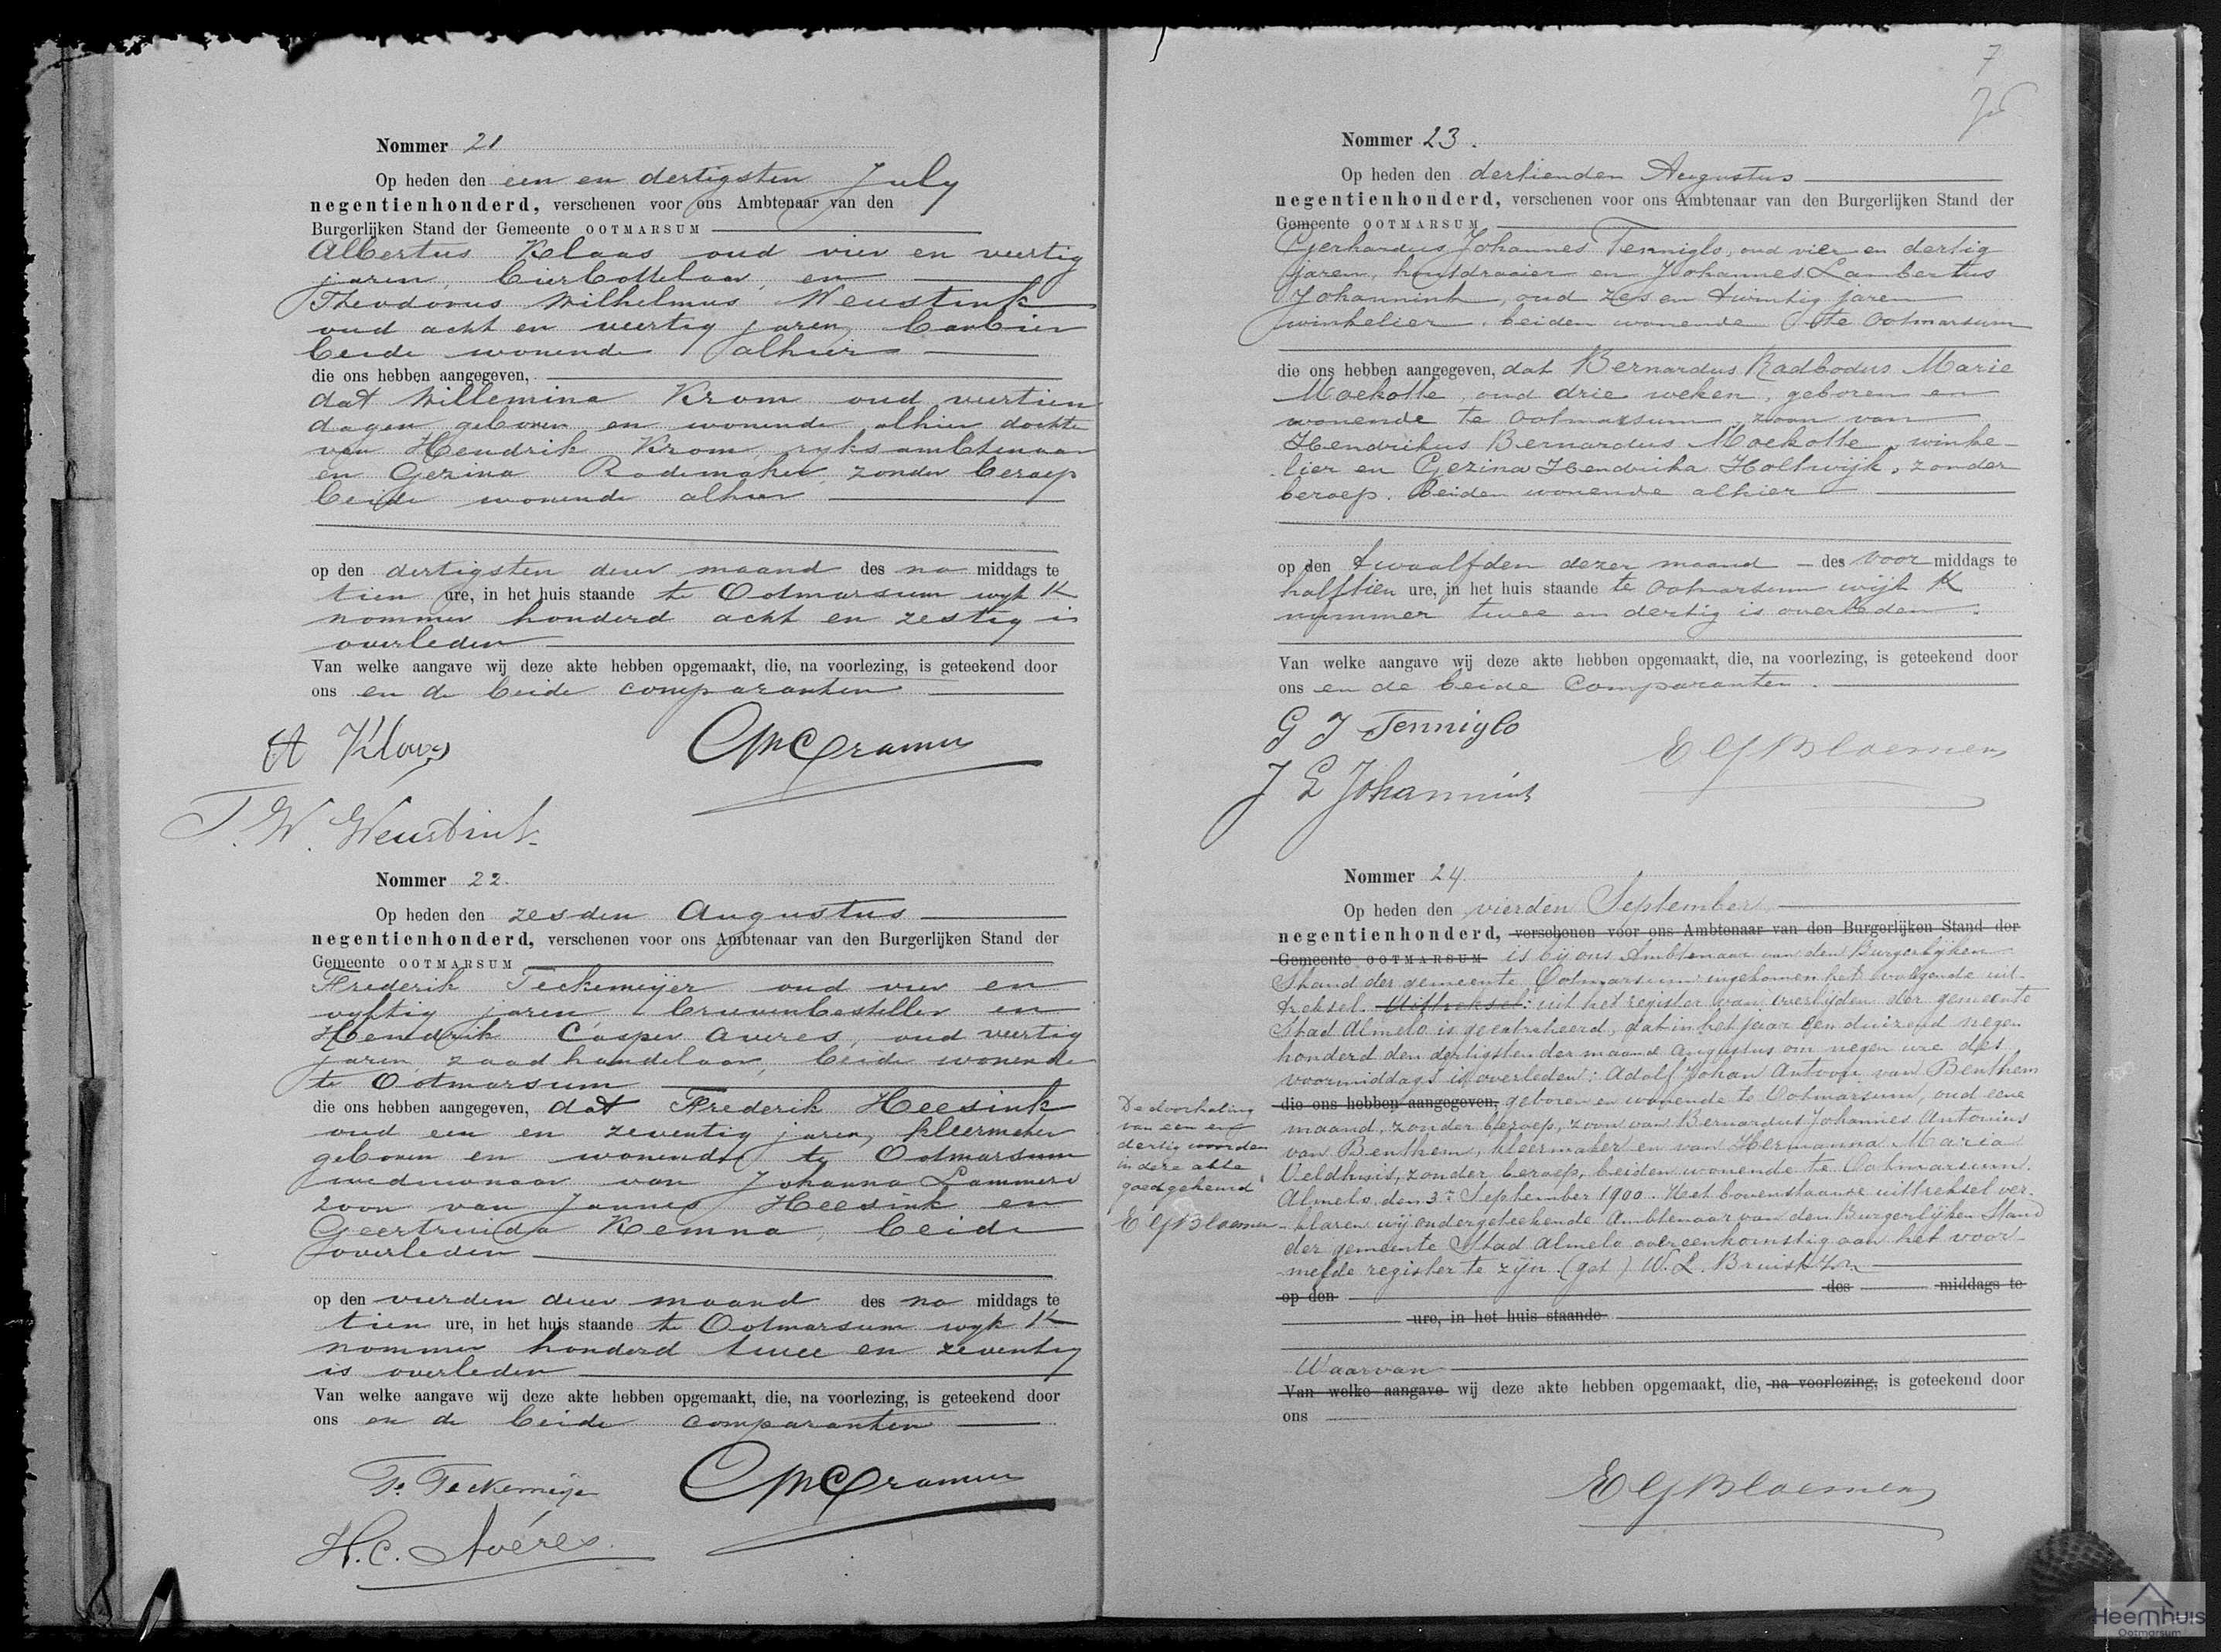 Nommer 21
Op heden den een en dertigsten July
negentienhonderd, verschenen voor ons Ambtenaar van den
Burgerlijken Stand der Gemeente OOTMARSUM
Albertus Klaas oud vier en veertig
jaren, bierbottelaar, en
Theodorus Wilhelmus Weustink
oud acht en veertig jaren, barbier
beide wonende alhier
die ons hebben aangegeven,
dat Willemina Krom oud veertien
dagen geboren en wonende alhier dochter
van Hendrik Krom, ryksambtenaar
en Gezina Rademaker, zonder beroep
beide wonende alhier
op den dertigsten dezer maand des na middags te
tien ure, in het huis staande te Ootmarsum wyk K
nommer honderd acht en zestig is
overleden
Van welke aangave wij deze akte hebben opgemaakt, die, na voorlezing, is geteekend door
ons en de beide comparanten
A Klaas
Cramer
T. W. Weustink
Nommer 22.
Op heden den zesden Augustus
negentienhonderd, verschenen voor ons Ambtenaar van den Burgerlijken Stand der
Gemeente OOTMARSUM
Frederik Teckemeijer oud vier en
vyftig jaren brievenbesteller en
Hendrik Casper Averes, oud veertig
jaren, zaadhandelaar, beide wonende
te Ootmarsum
die ons hebben aangegeven, dat Frederik Heesink
oud een en zeventig jaren, kleermaker
geboren en wonende te Ootmarsum
weduwnaar van Johanna Lammers
zoon van Jannes Heesink en
Geertruida Kemna, beide
overleden
op den vierden dezer maand des na middags te
tien ure, in het huis staande te Ootmarsum wyk K
nommer honderd twee en zeventig
is overleden
Van welke aangave wij deze akte hebben opgemaakt, die, na voorlezing, is geteekend door
ons en de beide comparanten
Fr. Teckemeije
Cramer
H. C. Avéres.
7
Nommer 23.
Op heden den dertienden Augustus
negentienhonderd, verschenen voor ons Ambtenaar van den Burgerlijken Stand der
Gemeente OOTMARSUM
Gerhardus Johannes Tenniglo, oud vier en dertig
jaren, houtdraaier en Johannes Lambertus
Johannink, oud zes en twintig jaren
winkelier, beiden wonende te Ootmarsum
die ons hebben aangegeven, dat Bernardus Radbodus Marie
Moekotte, oud drie weken, geboren en
wonende te Ootmarsum, zoon van
Hendrikus Bernardus Moekotte, winke-
lier en Gezina Hendrika Holtwijk, zonder
beroep. Beiden wonende alhier
op den twaalfden dezer maand des voor middags te
halftien ure, in het huis staande te Ootmarsum wijk K
nummer twee en dertig is overleden.
Van welke aangave wij deze akte hebben opgemaakt, die, na voorlezing, is geteekend door
ons en de beide Comparanten.
G J Tenniglo
E G Bloemen
J L Johannink
Nommer 24.
Op heden den vierden September
negentienhonderd, verschenen voor ons Ambtenaar van den Burgerlijken Stand der
Gemeente OOTMARSUM is bij ons Ambtenaar van den Burgerlijken
Stand der gemeente Ootmarsum ingekomen het volgende uit-
treksel. Uittreksel: uit het register van overlijden der gemeente
Stad Almelo is geextraheerd, dat in het jaar een duizend negen
honderd den dertigsten der maand Augustus om negen ure des
voormiddags is overleden: Adolf Johan Antoon van Benthem
die ons hebben aangegeven, geboren en wonende te Ootmarsum, oud eene
maand, zonder beroep, zoon van Bernardus Johannes Antonius
van Benthem, kleermaker en van Hermanna Maria
Veldhuis, zonder beroep, beiden wonende te Ootmarsum.
Almelo, den 3n September 1900. Het bovenstaande uittreksel ver-
klaren wij ondergeteekende Ambtenaar van den Burgerlijken Stand
der gemeente Stad Almelo overeenkomstig aan het voor-
melde register te zijn (get) W. L. Bruist
op den des middags te
ure, in het huis staande
Waarvan
Van welke aangave wij deze akte hebben opgemaakt, die, na voorlezing, is geteekend door
ons
De doorhaling
van een en
dertig woorden
in deze akte
goedgekeurd
E G Bloemen
E G Bloemen
Heemhuis
Ootmarsum